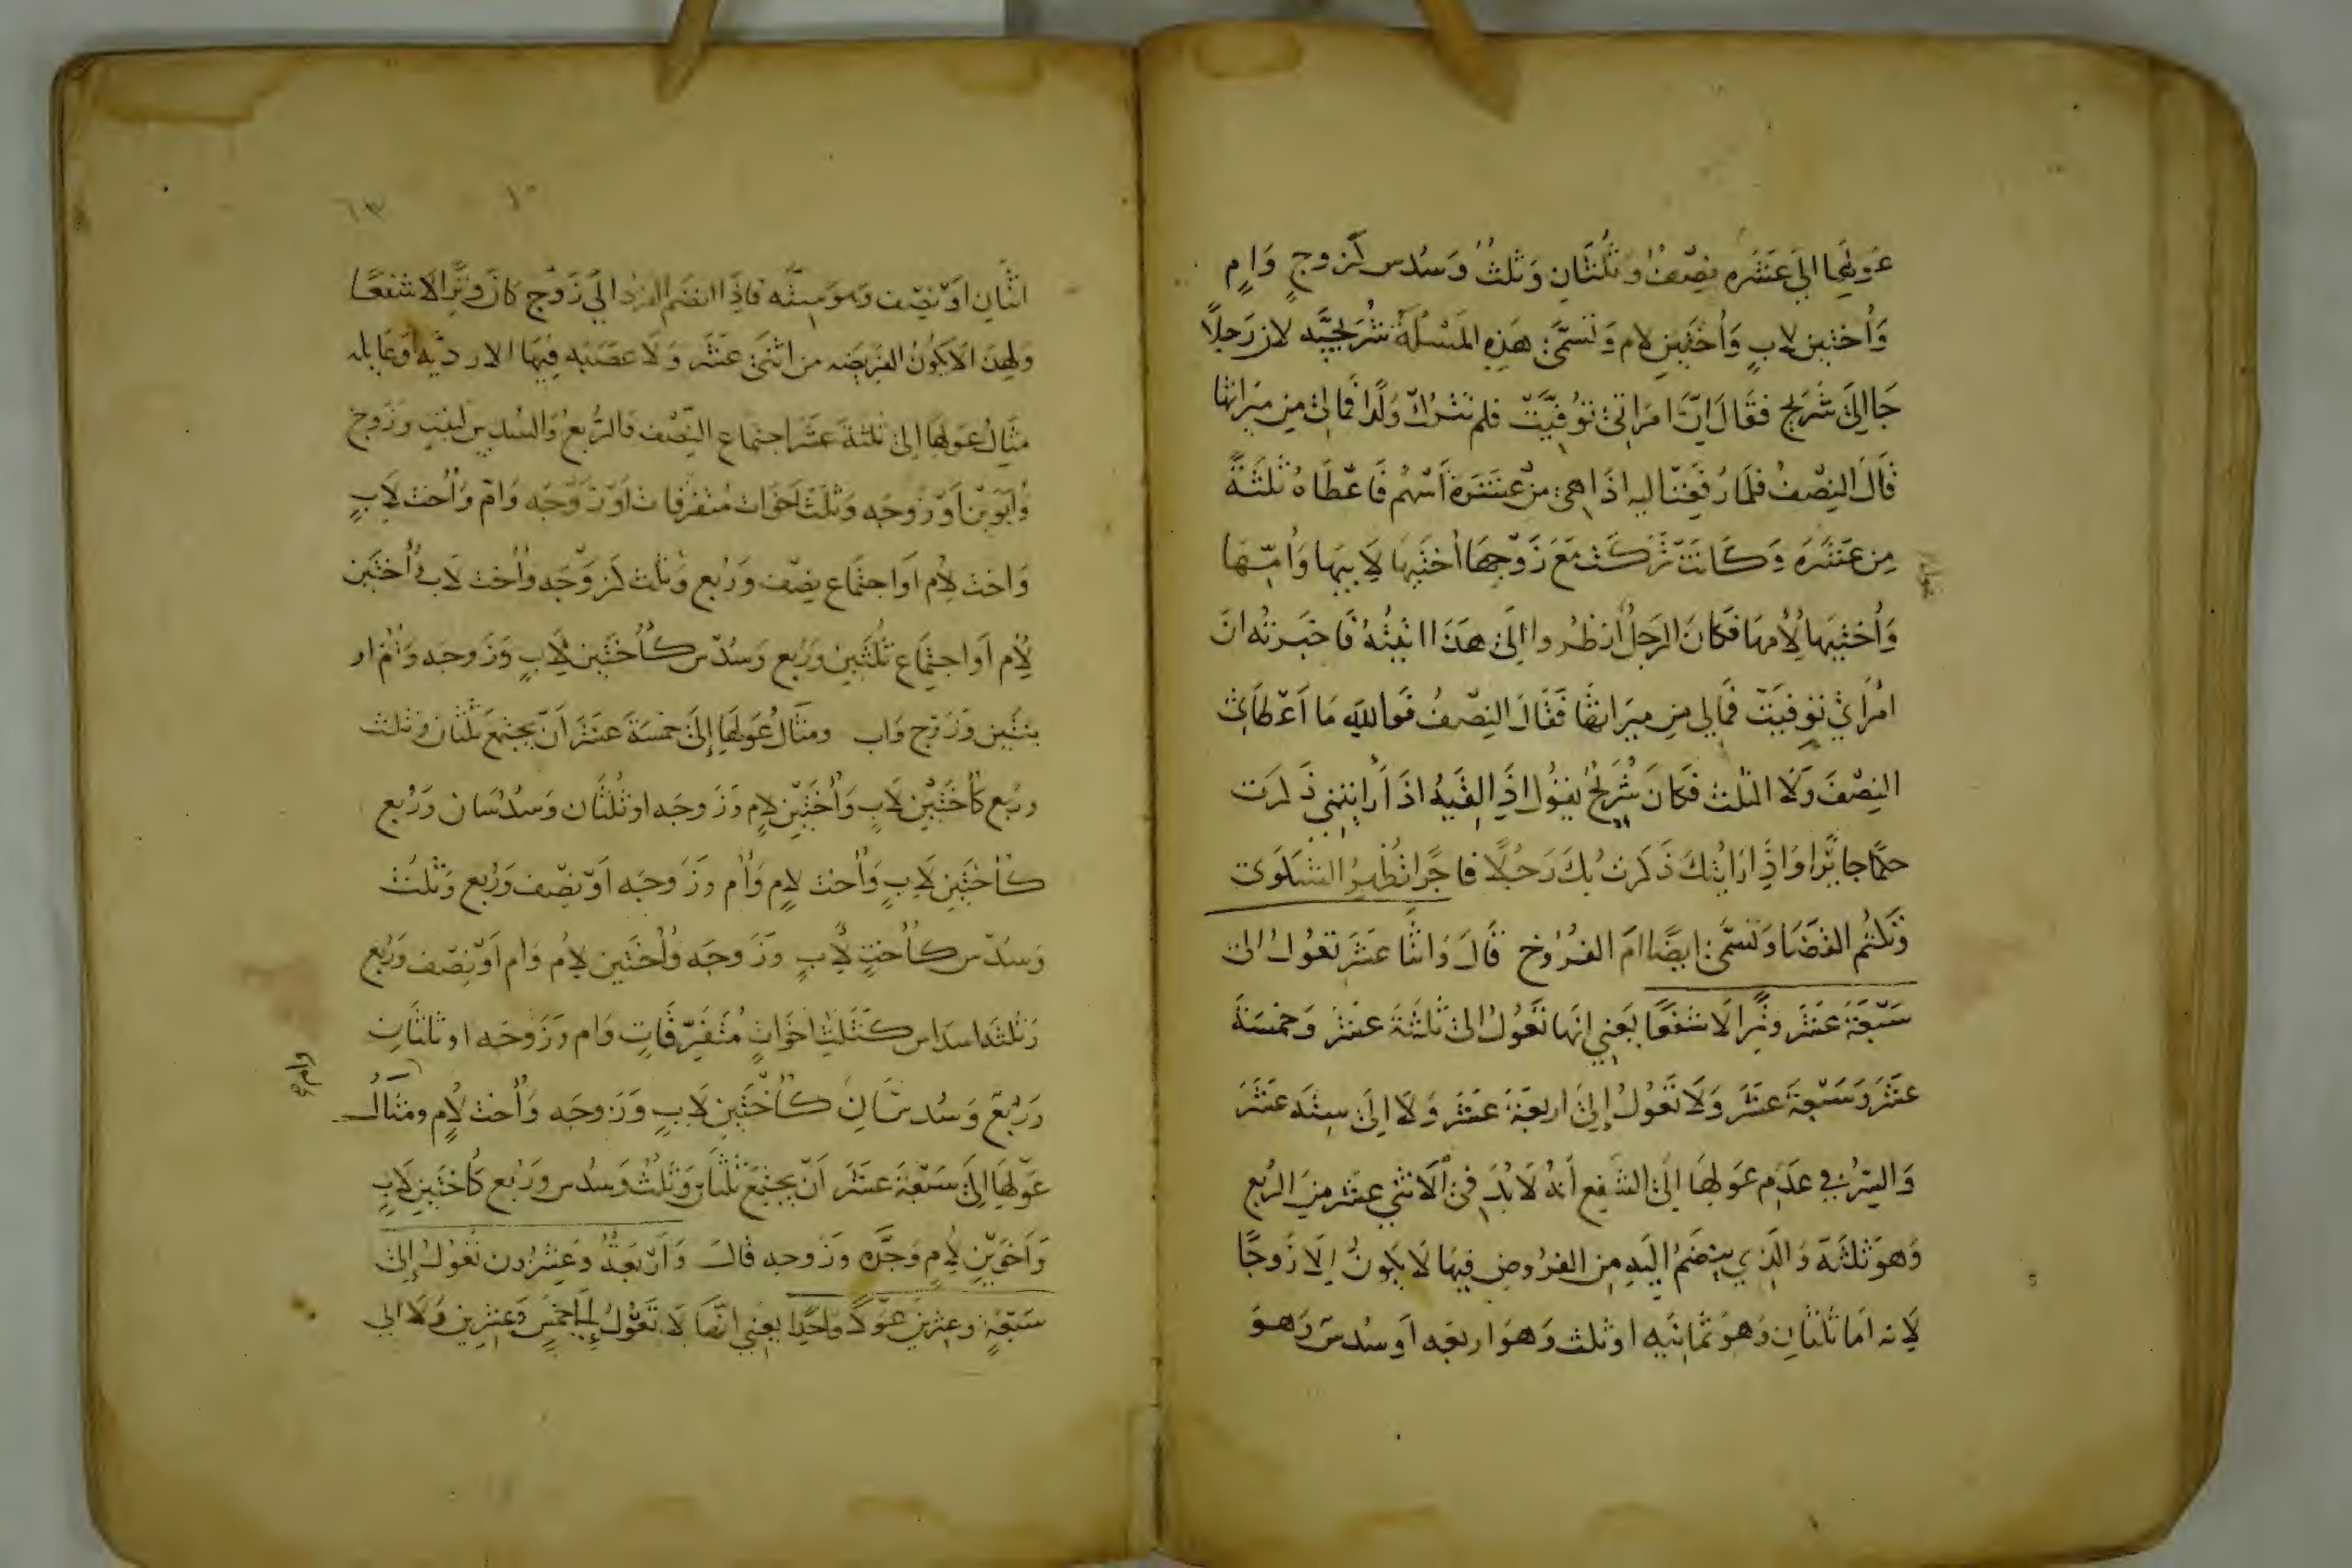 عَولِها الى عَشَره نِصْف وَثُلثَانِ وَثلثٌ وَسُدس كزوجٍ وَامٍ
وَأُختَين لابٍ وَأُختَينِ لام وَتسَمَّى هَذِهِ المَسْئلَةُ شُرَيحيَّه لان رَجلاً
جَا اِلىَ شُرَيح فقَالَ اِنَّ امرَاتى تُوُفِّيَتْ فلم تترُكْ وَلَدًا فمَالى مِن ميَراثها
قَالَ النِصْفُ فلمَا رُفِعَتْ اليه اذَا هى مِنْ عَشَرَةِ أَسْهُم فَاعْطَاهُ ثلثَةً
مِن عَشَرَه وَكَانَتْ تَرَكَتْ مَعَ زَوْجِهَا أختَيهَا لاَبيهَا وَأُمّهَا
وَأُختَيهَا لِأُمهَا فكَانَ الرَجلُ
امْرَاتى تُوفيَتْ فمَالِي مِن مِيَراثهَا فقَالَ النِصْفُ فَوَاللهِ مَا اَعْطَانى
النِصْفَ وَلَا الثلث فكَانَ شُرَيْحٌ يَقُولُ اذا لَقيَهُ اذَا رَأيْتَنِي ذَكرت
حكمًا جايرًا وَاذِا رَايْتُكَ ذَكَرتُ بكَ رَجُلًا فاجرًا تُظْهِرُ الشكوَى
وَتكتُم القضَا وَتسَمّى ايضًا امَ الفرُوخ قَالَ وَاثنَا عشَرَ تَعُولُ الى
سَبْعَةَ عشَرَ وِتْرًا لاَ شَفعًا يَعنِي انهَا تَعُولُ الى ثَلثَةَ عشَرَ وَخمسَةَ
عشَرَ وَسَبْعَةَ عشَرَ وَلَا تَعُولُ إلى اربَعَةَ عشَرَ وَلَا اِلى ستَه عشَرَ
وَالسِّرُّ في عدَم عَولِهَا الى الشَفع أنهُ لَابُدَ فى الاثنَي عشَر مِنَ الرُبع
وَهوَ ثلثَه وَالذي ينضَمُ اليَه مِنَ الفرُوض فيهَا لَا يكونُ اِلَا زَوجًا
لِانه اَما ثلثانِ وَهوَ ثمَانيَه اوثلث وَهوَ اربعَه اَو سُدس وَهوَ
٦٣
اثنَان اَوْ نصْف وَهوَ سِتَّه فاِذَا انضَم الفَردُ الىَ زَوْج كانَ وِترًا لَا شفعًا
وَلهذَا لَا يكونُ الفرَيضَه من اثنَى عَشَر وَلَا عصَبَه فِيهَا الا رديّه اَو عَايله
مثَالُ عَوْلهَا اِلى ثلثةَ عشَرَ اجتمَاع النِّصْف وَالرُّبع وَالسُّدس كبنتٍ وَزَوج
وَأبَوَيْن اَوْ زَوجَه وَثلَث اَخوَات مُتفَرقَات اَوْ زَوْجَه وَامّ وَأُخت لاَبٍ
وَاخت لاِم اَو اجتمَاع نِصْف وَرُبع وَثُلث كزَوْجَه وَأُخت لاَب وَأُختَين
لاُِم اَو اجتِمَاع ثُلثَين وَرُبع وَسُدْس كَأُختَين لاَِبٍ وَزَوجَه وَأُم او
بنتَين وَزَوْج وَاب ومثَالُ عَولهَا إلىَ خمسَةَ عشَرَ أَنْ يجتَمع ثلثَان وَثلث
وربُع كأُختَيْن لاَبٍ وَأُختَيْن لاِمٍ وَزَوجَه او ثُلثَان وَسُدُسَان وَرُبع
كأُختَين لاَبٍ وَأُخت لاِمٍ وَأُم وَزَوجَه اَوْ نصْف وَرُبع وَثلث
وَسُدْس كَأُختٍ لاَِبٍ وَزَوجَه وَأُختَين لاِمُ وَام اَوْ نِصْف وَرُبع
وَثلثة اسدَاس كَثَلثِ اخَوَاتٍ مُتفَرّقَاتٍ وَام وَزَوجَه او ثلثَانِ
وَرُبْع وَسُدسَانِ كأُخْتَينِ لاَبٍ وَزَوجَه وَأُخت لاُِم وَمثَالُ
وام صح
عَوْلهَا اِلىَ سَبْعَةَ عشَرَ اَنْ يجتَمعَ ثلثَان وَثُلثٌ وَسُدس وَرُبع كأُختَين لاَِبٍ
وَاَخَوَيْنِ لاُِمٍ وَجَدَّه وَزَوجه قَالَ وَاَرْبَعَةٌ وَعِشرُون تَعُولُ إلى
سَبْعَةٍ وعِشرينَ عَوْلًا واحِدًا يَعني انّهَا لَا تَعُوْلُ اِلىَ خمسٍ وَعِشرينَ وَلَا الى